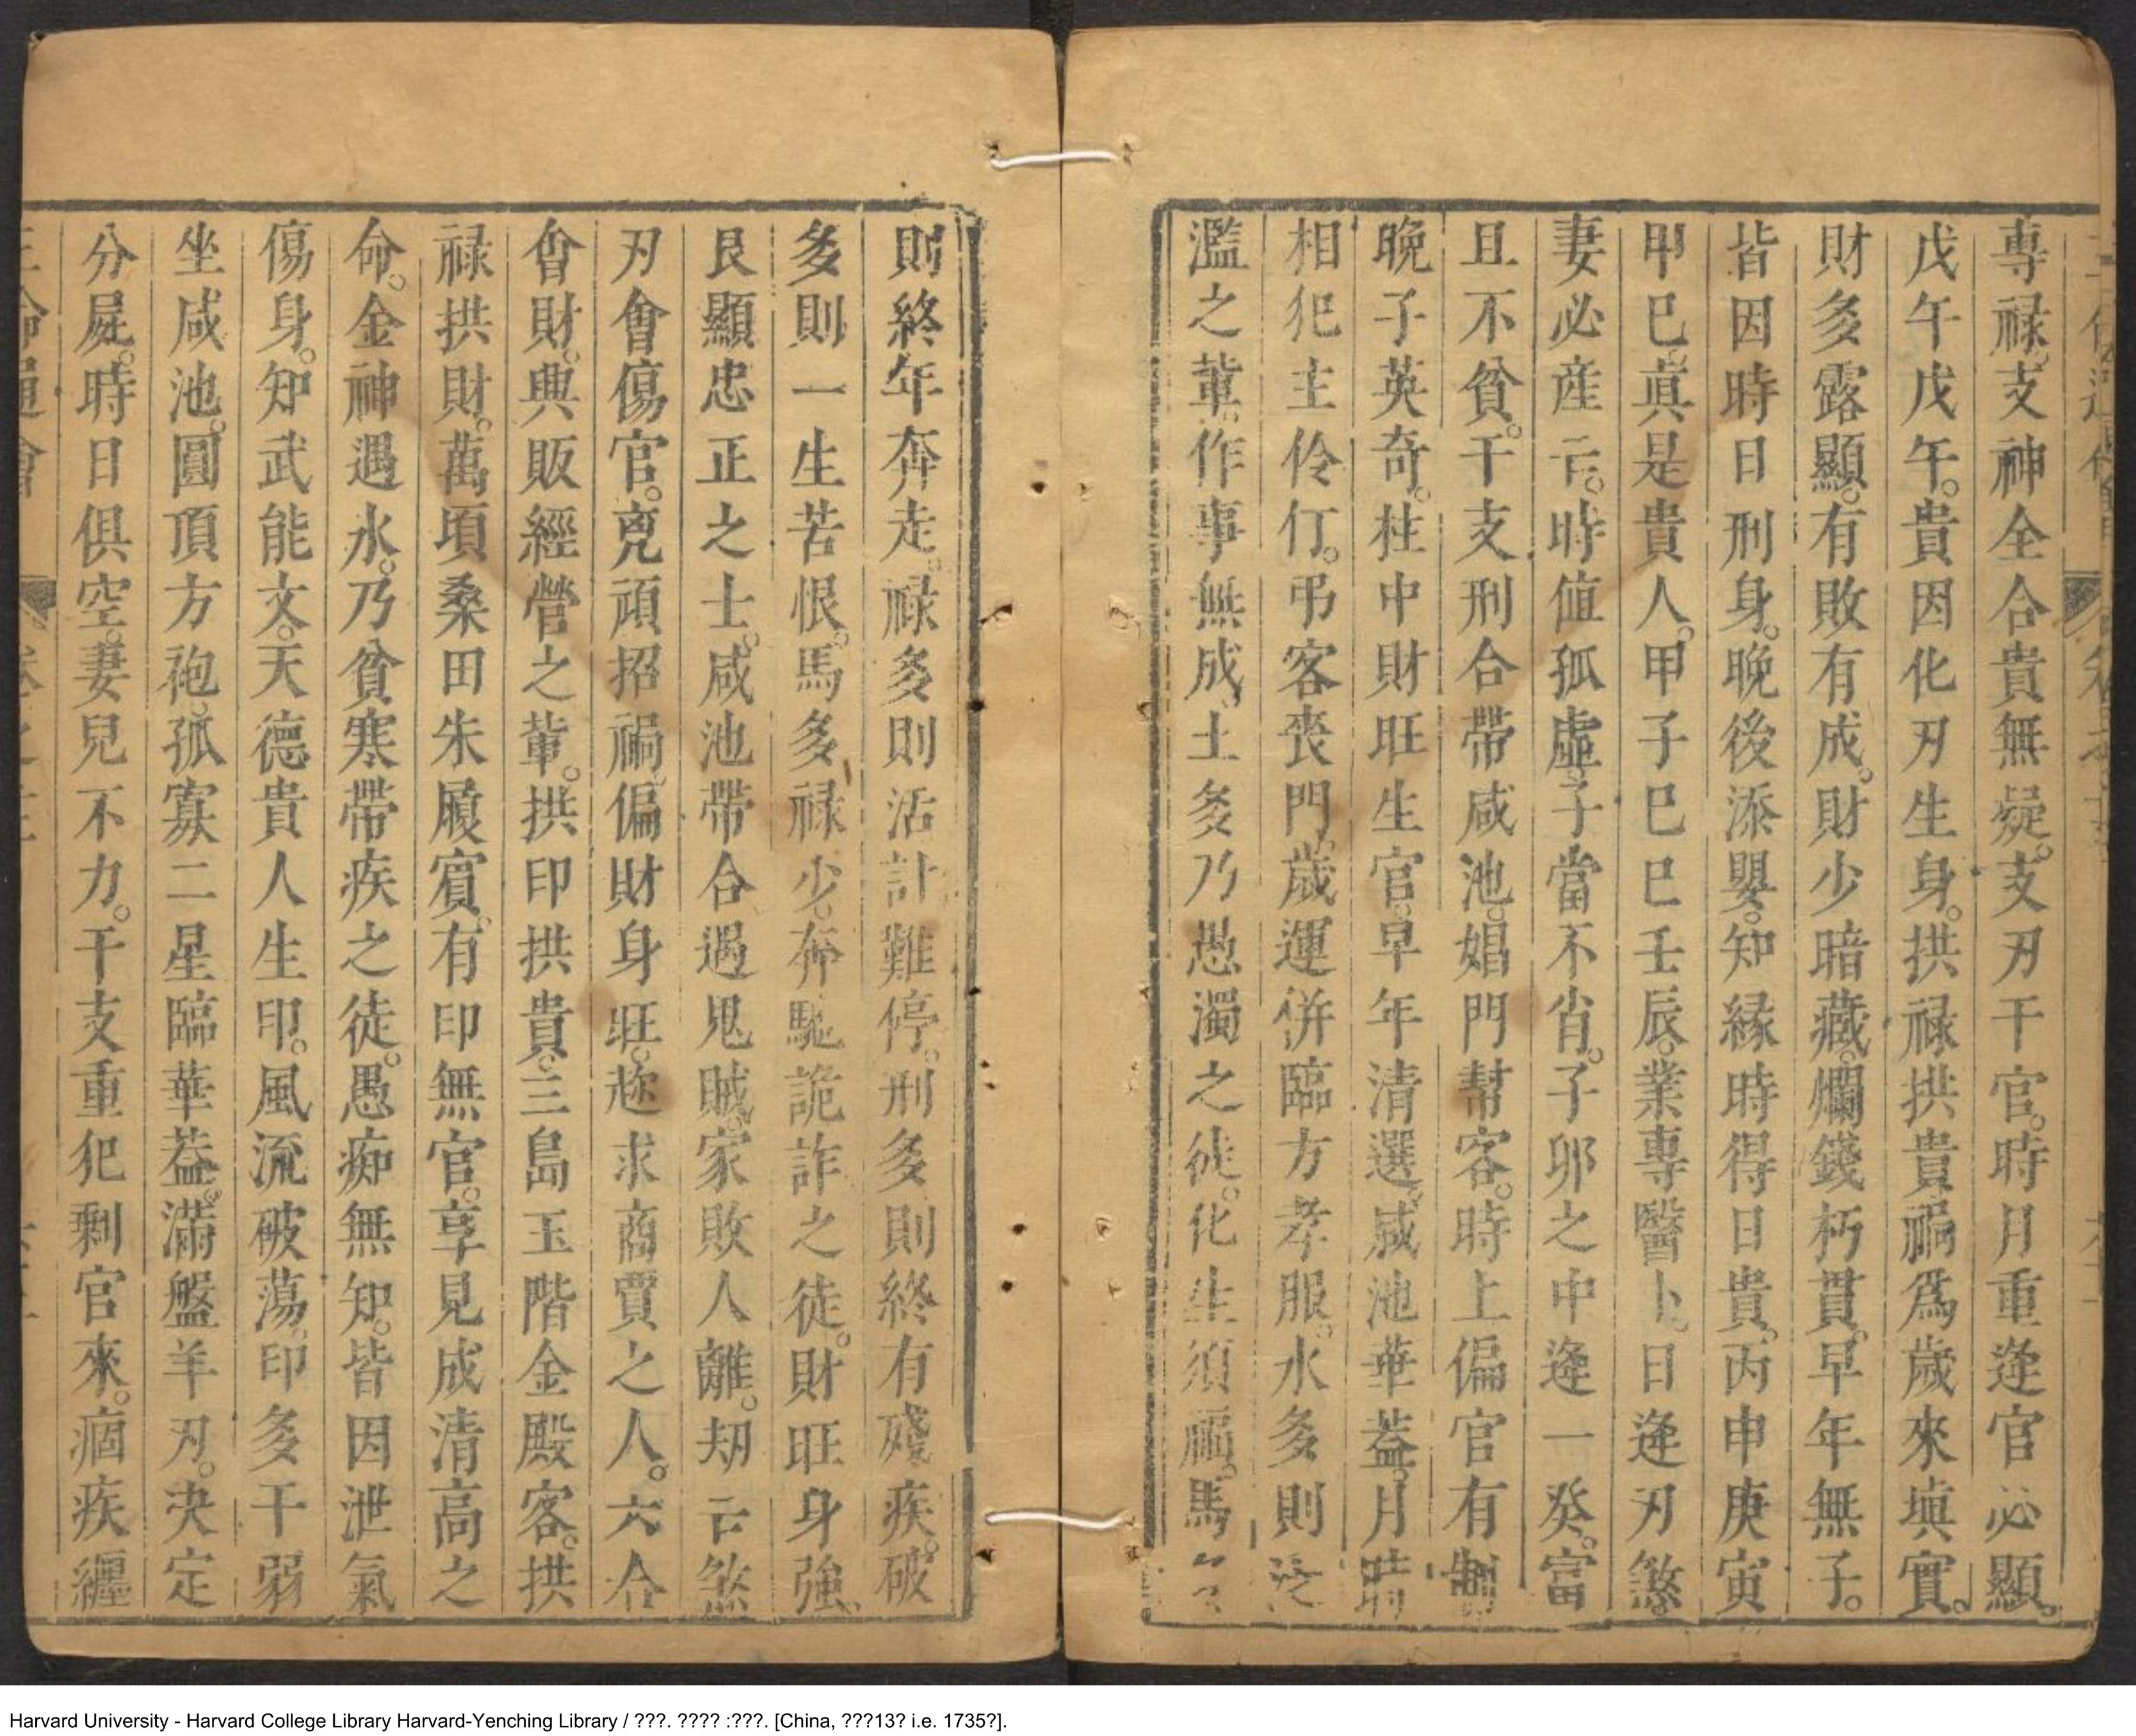 專祿。支神全合貴無疑。支刃干官。時月重逢官必顯。
戊午戊午。貴因化刃生身。拱祿拱貴禍爲歲來塡實。
財多露顯。有敗有成。財少暗藏。爛錢朽貫。早年無子。
皆因時日刑身。晚後添嬰。知緣時得日貴。丙申庚寅
甲巳。眞是貴人。甲子巳巳壬辰。業專醫卜。日逢刃煞。
妻必産亡。時値孤虛。子當不肖。子卯之中逢一癸。富
且不貧。干支刑合帶咸池。娼門幇客。時上偏官有制
晚子英奇。柱中財旺生官。早年清選。咸池華葢。月時
相犯主伶仃。弔客喪門。歲運併臨方孝服。水多則泛
濫之輩。作事無成。土多乃愚濁之徒。化生須福。馬
則終年奔走。祿多則活計難停。刑多則終有殘疾。破
多則一生苦恨。馬多祿少。奔馳詭詐之徒。財旺身強。
艮顯忠正之士。咸池帶合遇鬼賊。家敗人離。刧亡煞
刃會傷官。兇頑招禍。偏財身旺。趂求商賈之人。六合
會財。典販經營之輩。拱印拱貴。三島玉階金殿客。拱
祿拱財。萬頃桑田朱履賓。有印無官。享見成清高之
命。金神遇水。乃貧寒帶疾之徒。愚痴無知。皆因泄氣
傷身。知武能文。天德貴人生印。風流破蕩。印多干弱
坐咸池。圓頂方袍。孤寡二星臨華葢。滿盤羊刃。决定
分屍。時日俱空。妻兒不力。干支重犯剩官來。痼疾纏